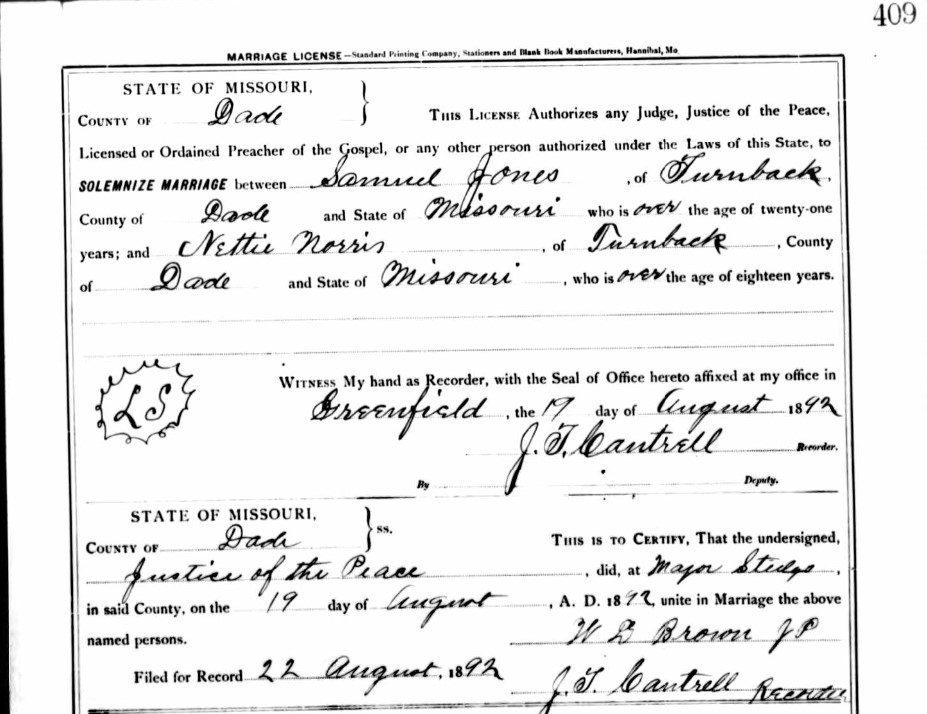 409
MARRIAGE LICENSE—Standard Printing Company, Stationers and Blank Book Manufacturers, Hannibal, Mo.
STATE OF MISSOURI,
COUNTY OF Dade } THIS LICENSE Authorizes any Judge, Justice of the Peace,
Licensed or Ordained Preacher of the Gospel, or any other person authorized under the Laws of this State, to
SOLEMNIZE MARRIAGE between Samuel Jones, of Turnback,
County of Dade and State of Missouri who is over the age of twenty-one
years; and Nettie Norris, of Turnback, County
of Dade and State of Missouri, who is over the age of eighteen years.
LS
WITNESS My hand as Recorder, with the Seal of Office hereto affixed at my office in
Greenfield, the 19 day of August 1892
J. T. Cantrell Recorder.
By Deputy.
STATE OF MISSOURI,
COUNTY OF Dade } ss. THIS IS TO CERTIFY, That the undersigned,
Justice of the Peace, did, at Major
in said County, on the 19 day of August, A. D. 1892, unite in Marriage the above
named persons. W D Brown JP
Filed for Record 22 August, 1892
J. T. Cantrell Recorder